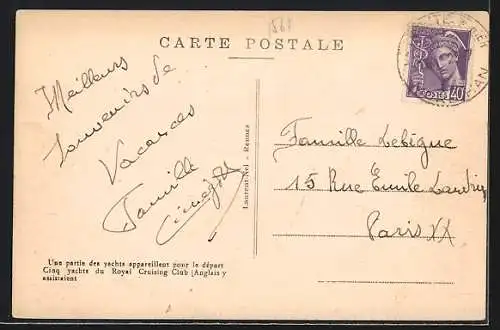 1561
CARTE POSTALE
Meilleurs
Souvenirs de
Vacances
Famille
Laurent-Nel - Rennes
40c
Famille Lebègue
15 Rue Emile Landrin
Paris XX
Une partie des yachts appareillent pour le départ
Cinq yachts du Royal Cruising Club (Anglais y
assistaient